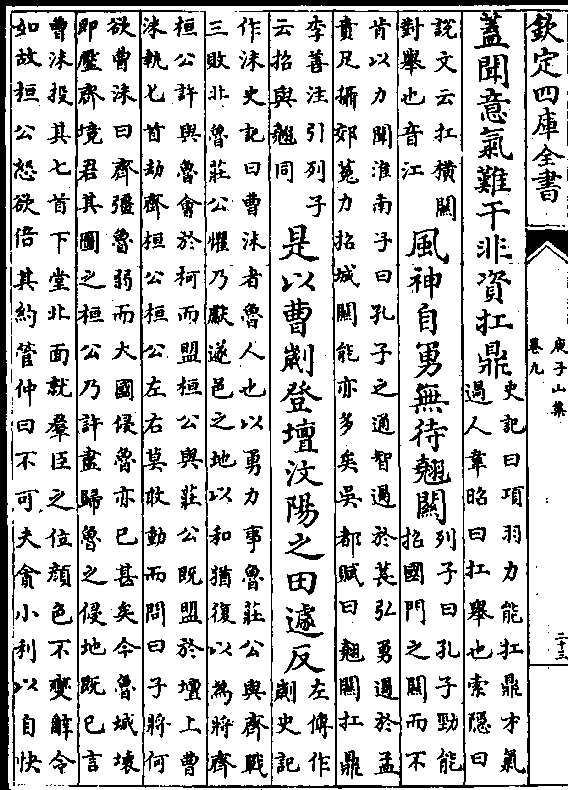 欽定四庫全書
庚子山集
卷九
二十三
蓋聞意氣難干非資扛鼎
史記曰項羽力能扛鼎才氣
過人韋昭曰扛舉也索隱曰
說文云扛橫關
對舉也音江
風神自勇無待翹關
列子曰孔子勁能
招國門之關而不
肯以力聞淮南子曰孔子之通智過於萇弘勇過於孟
賁足攝郊菟力招城關能亦多矣吳都賦曰翹關扛鼎
李善注引列子
云招與翹同
是以曹劌登壇汶陽之田遽反
左傳作
劌史記
作沬史記曰曹沬者魯人也以勇力事魯莊公與齊戰
三敗非魯莊公懼乃獻遂邑之地以和猶復以為將齊
桓公許與魯會於柯而盟桓公與莊公既盟於壇上曹
沬執匕首劫齊桓公桓公左右莫敢動而問曰子將何
欲曹沬曰齊彊魯弱而大國侵魯亦已甚矣今魯城壞
即壓齊境君其圖之桓公乃許盡歸魯之侵地既已言
曹沬投其匕首下堂北面就羣臣之位顏色不變辭令
如故桓公怒欲倍其約管仲曰不可夫貪小利以自快